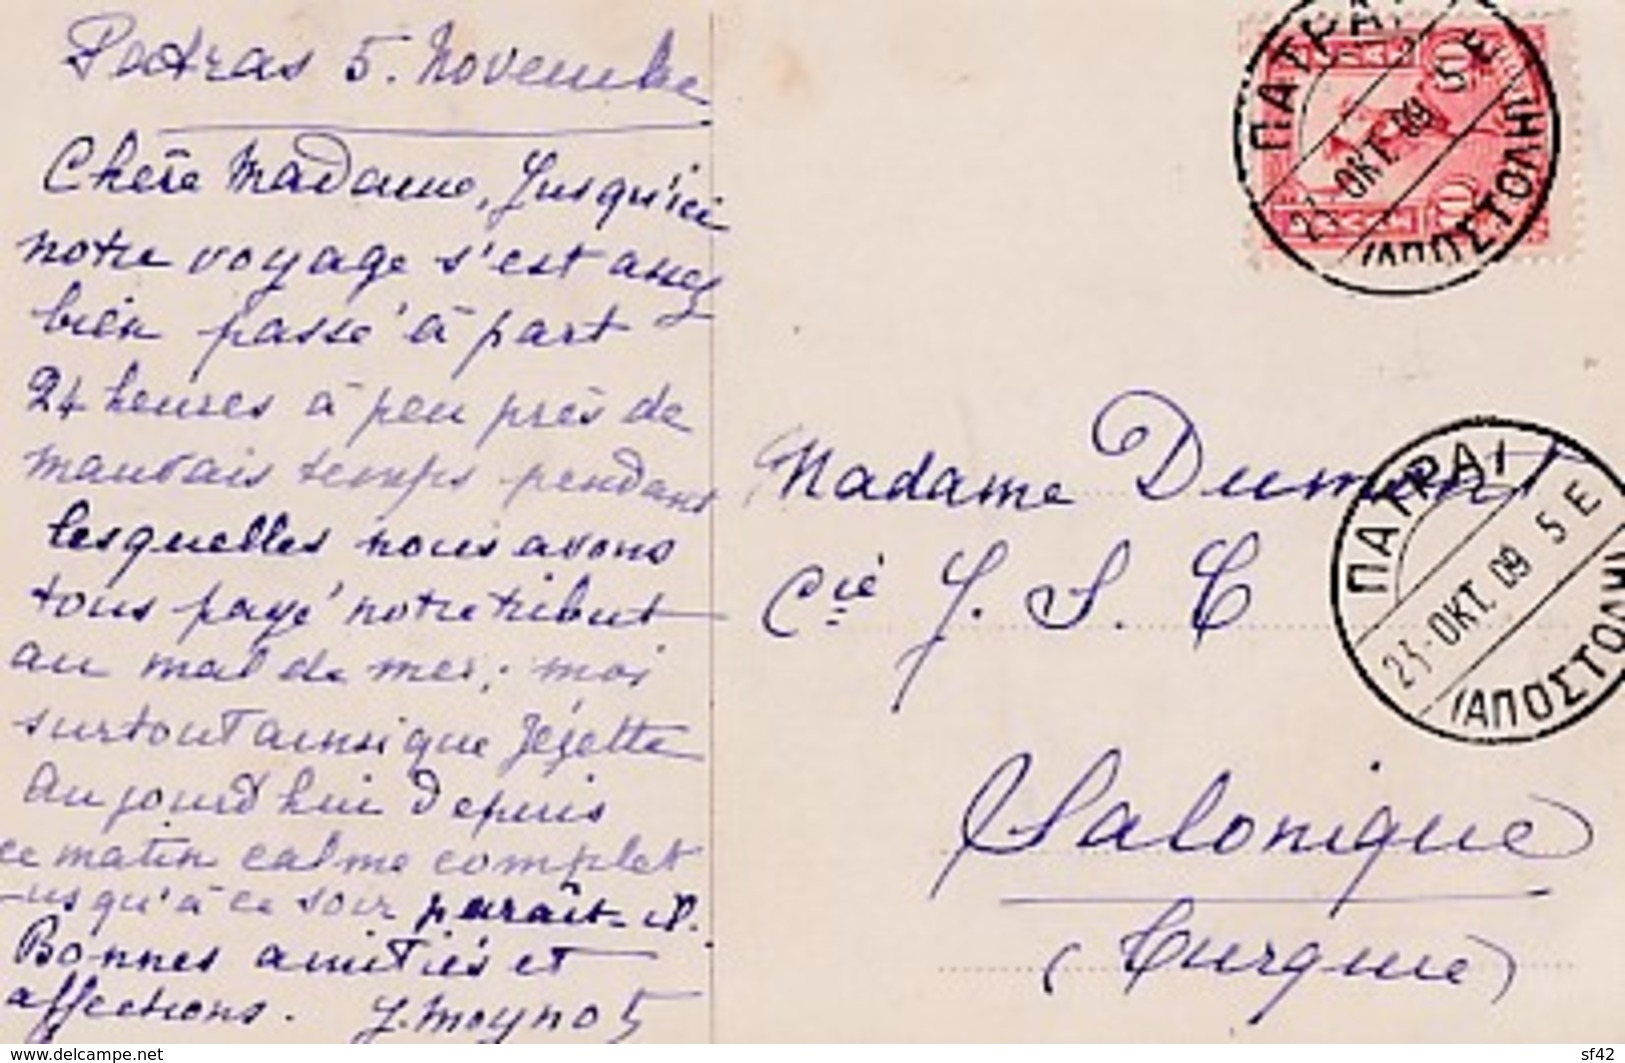 Patras 5. Novembre
Chère Madame, Jusqu'ici
notre voyage s'est assez
bien passé à part
24 heures à peu près de
mauvais temps pendant
lesquelles nous avons
tous payé notre tribut
au mal de mer; moi
surtout ainsi que Zézette
Aujourd'hui depuis
ce matin calme complet
usqu'à ce soir paraît-il.
Bonnes amitiés et
affections. J. Moynot
ΠΑΤΡΑΙ
5 E
23 ΟΚΤ. 09
(ΑΠΟΣΤΟΛΗ
10
10
Madame Dumont
Cie J. S. C
Salonique
(Turquie)
ΠΑΤΡΑΙ
23-ΟΚΤ. 09 5 E
(ΑΠΟΣΤΟΛΗ
www.delcampe.net
sf42